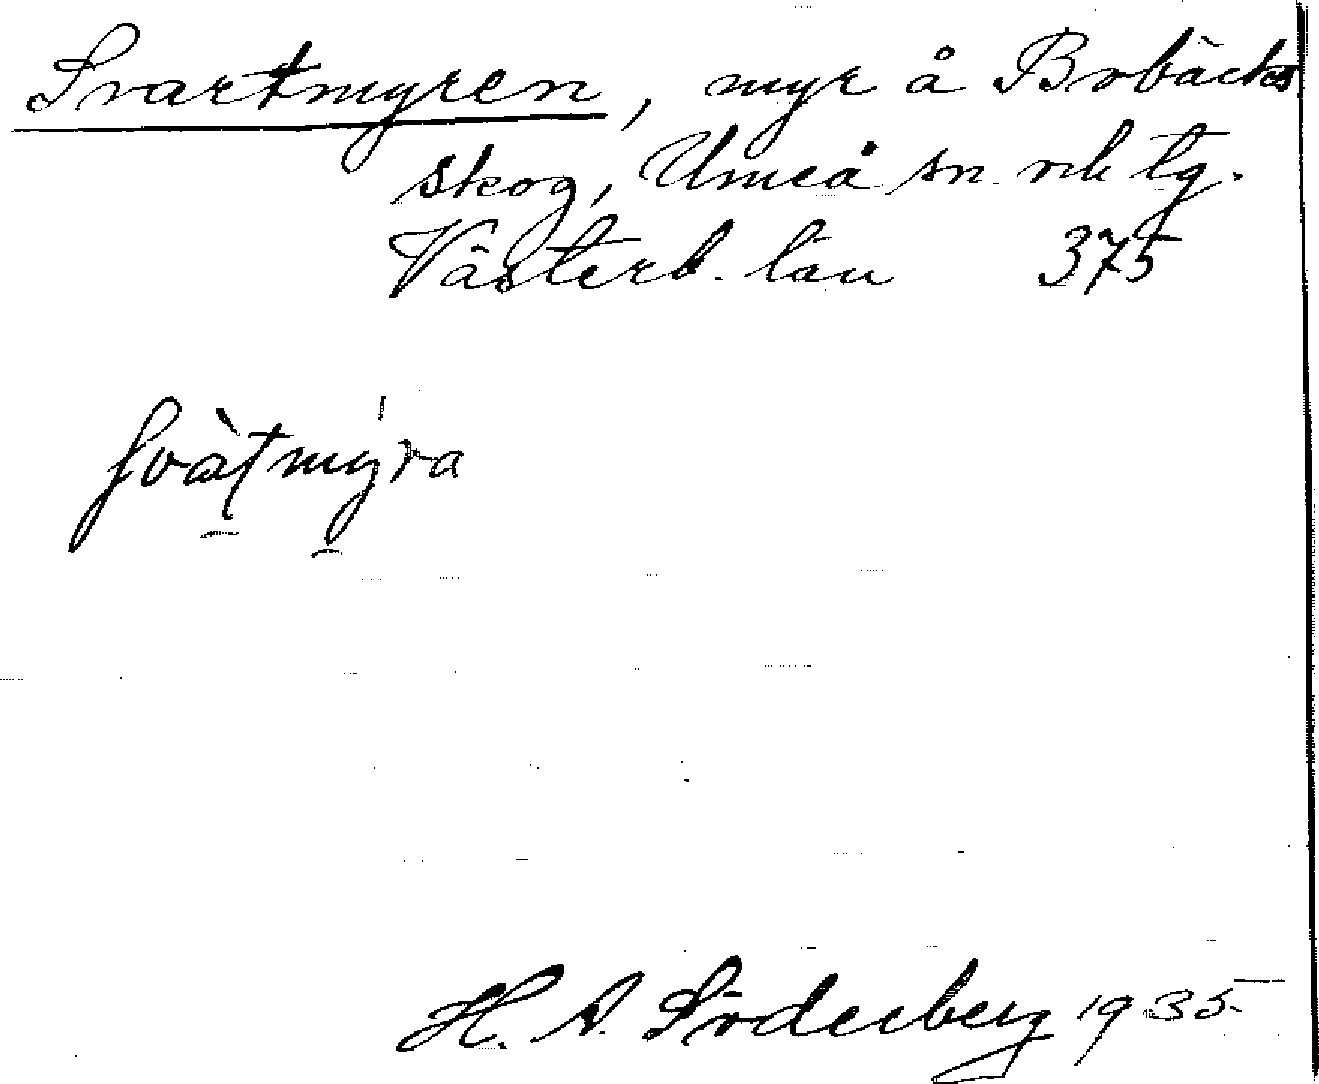 Svartmyren, myr å Brobäcks
skog, Umeå sn och tg.
Västerb. län 375
svàtmyra
H. A. Söderberg 1935